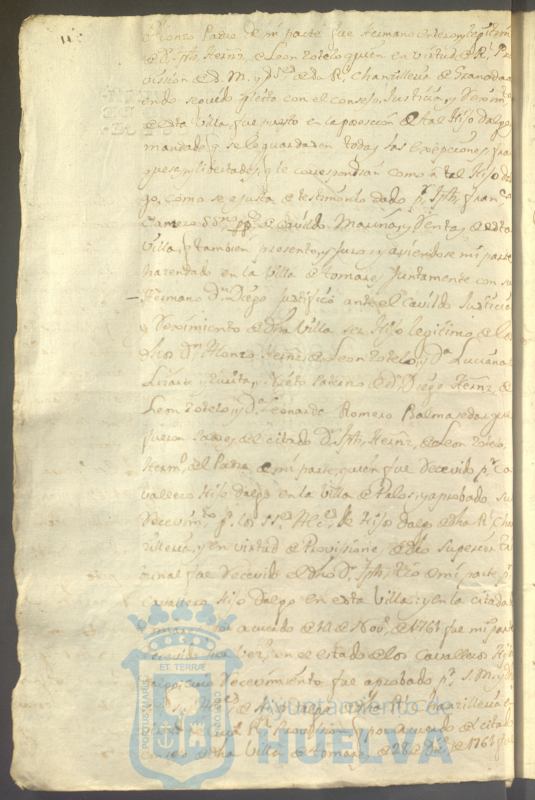 Alonzo Padre de mi parte fue Hermano entero y legitimo
de Dn Jph. Hernz. de Leon Zotelo quien en virtud de Rl. Pro
vission de S. M. y SSes. de su Rl. Chanzilleria de Granada
endo seguido pleito con el consejo, Justicia, y Reximto.
de esta Villa, fue puesto en la posescion de tal Hijo Dalgo
mandado q. se lo guardasen todas las Exepciones, fran
quesas, y libertades, q. le correspondian como á tal Hijo Dal
go, como se ejusta de testimonio dado pr. Jph. Franco.
Camero Ssno. ppco. de cavildo, Marina, y Renta, de esta
Villa, q. tambien presento, y juro; y aviendose mi parte
hazendado en la Villa de tomares juntamente con su
Hermano Dn. Diego justificó ante el Cavildo Justicia
y Reximiento de dha Villa ser Hijo legitimo de los
dhos Dn. Alonzo Hernz. de Leon Zotelo, y Da. Luciana
Lizaro y Zurita, Nieto Paterno de Dn. Diego Hernz. de
Leon Zotelo, y Da. Leonarda Romero Balmaseda, q. que
fueron Padres del citado Dn. Jph. Hernz. de Leon Zotelo
Hermo. del Padre de mi parte, quien fue Recevido pr. Ca
vallero Hijo Dalgo en la Villa de Palos, y aprobado su
Recevimto. p. los SSes. Alcs. de Hijo Dalgo de dha Rl. Chan
zilleria, y en virtud de Provissione, de dho Superior Tri
bunal fue Recevido el dho Dn. Jph. Tio de mi parte pr.
Cavallero Hijo Dalgo en esta Villa: y en la citada
tomares por acuerdo de 10 de Novre. de 1761 fue mi parte
recevido por Vezo. en el estado de los Cavalleros Hijos
Recevimiento fue aprobado pr. S. M. y
SSes. Alcs. de Hijo Dalgo de dha Rl. Chanzilleria
Rl. Provission, y por acuerdo del citado
Consejo de dha Villa de tomares de 28 de Dice. de 1761 fue
PORTUS MARIS
ET TERRE
CUSTODIA
Ayuntamiento de
HUELVA